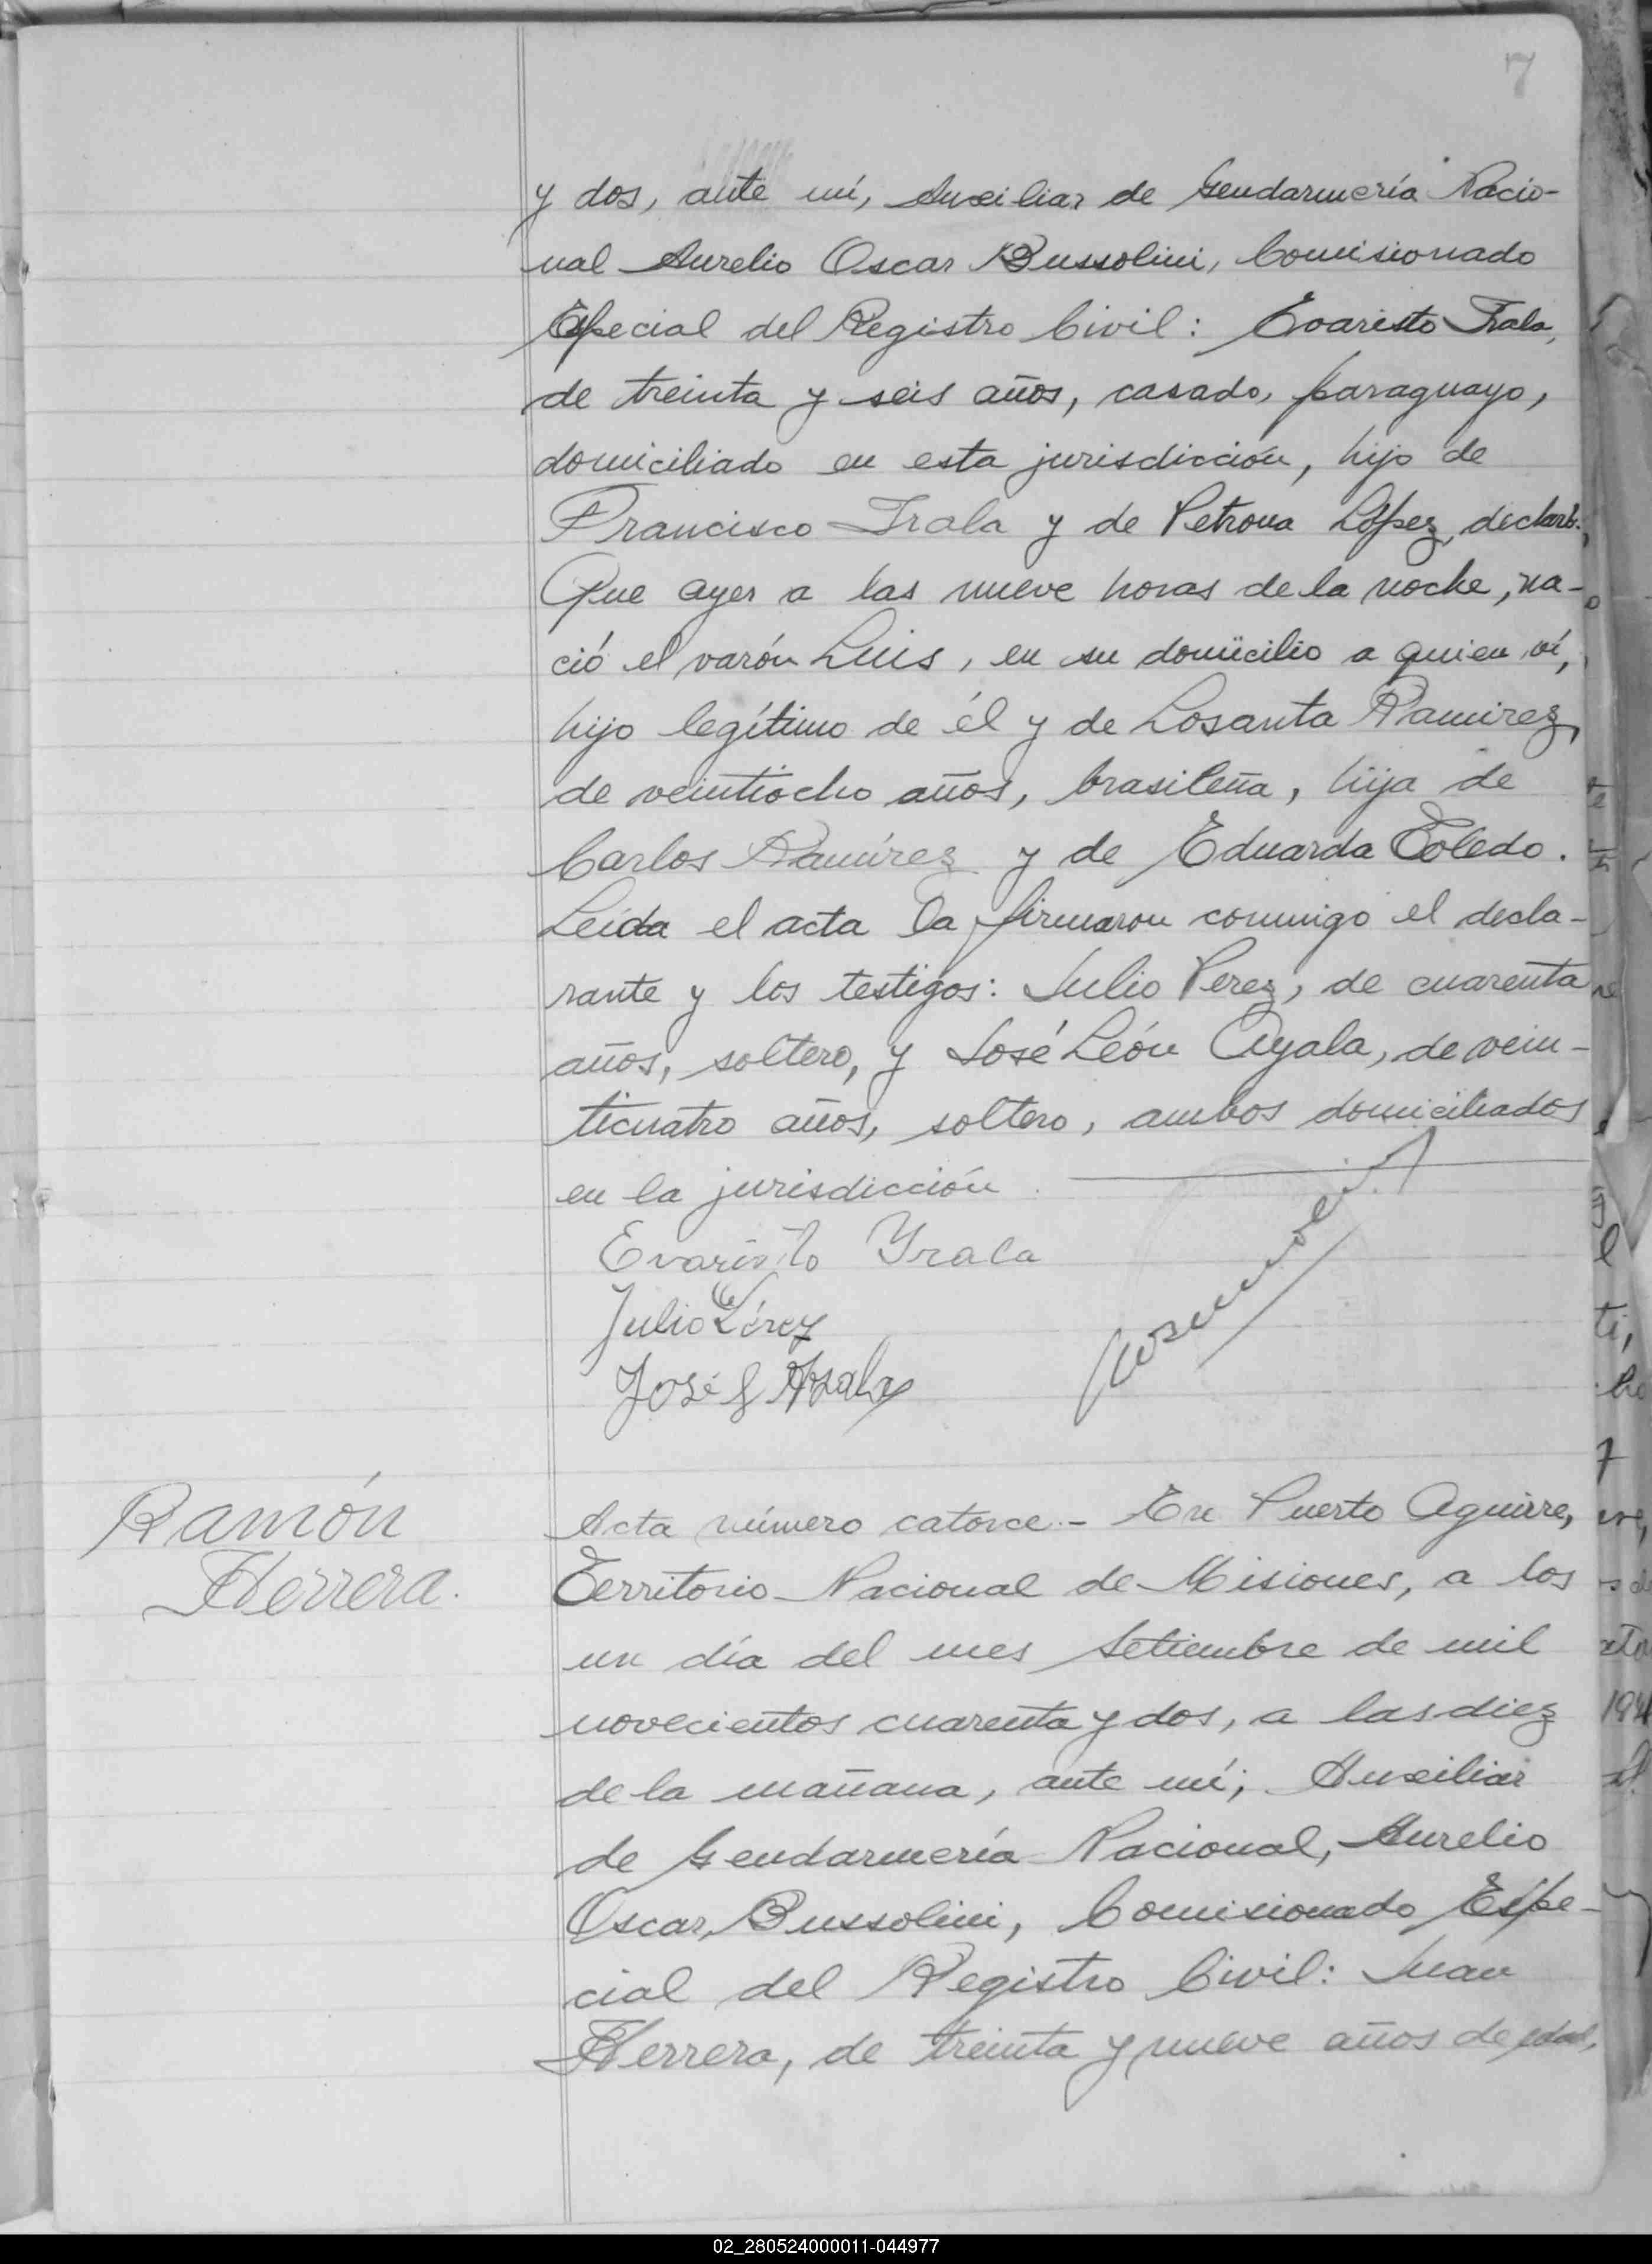 7
y dos, ante mí, Auxiliar de Gendarmería Nacio-
nal Aurelio Oscar Bussolini, Comisionado
Especial del Registro Civil: Evaristo Irala,
de treinta y seis años, casado, paraguayo,
domiciliado en esta jurisdicción, hijo de
Francisco Irala y de Petrona López, declaró:
Que ayer a las nueve horas de la noche, na-
ció el varón Luis, en su domicilio a quien ví,
hijo legítimo de él y de Losanta Ramirez,
de veintiocho años, brasileña, hija de
Carlos Ramírez y de Eduarda Toledo.
Leída el acta la firmaron conmigo el decla-
rante y los testigos: Julio Perez, de cuarenta
años, soltero, y José León Ayala, de vein-
ticuatro años, soltero, ambos domiciliados
en la jurisdicción.
Evaristo Yrala
Julio Pérez
José L Ayala
Ramón
Herrera.
Acta número catorce.- En Puerto Aguirre,
Territorio Nacional de Misiones, a los
un día del mes Setiembre de mil
novecientos cuarenta y dos, a las diez
de la mañana, ante mí; Auxiliar
de Gendarmería Nacional, Aurelio
Oscar Bussolini, Comisionado Espe-
cial del Registro Civil: Juan
Herrera, de treinta y nueve años de edad,
02_280524000011-044977